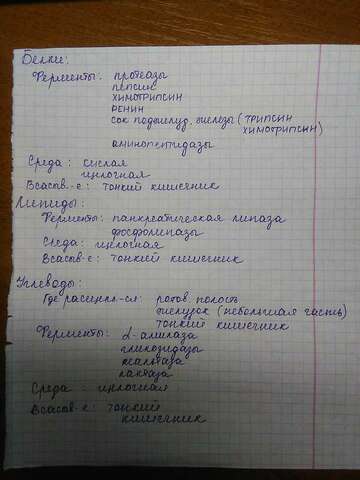 Белки:
Ферменты: протеазы
пепсин
химотрипсин
ренин
сок поджелуд. железы (трипсин
химотрипсин)
аминопептидазы
Среда: кислая
щелочная
Всасыв-е: тонкий кишечник
Липиды:
Ферменты: панкреатическая липаза
фосфолипазы
Среда: щелочная
Всасыв-е: тонкий кишечник
Углеводы:
Где расщепл-ся: ротов. полость
желудок (небольшая часть)
тонкий кишечник
Ферменты: α-амилаза
гликозидазы
мальтаза
лактаза
Среда: щелочная
Всасыв-е: тонкий
кишечник